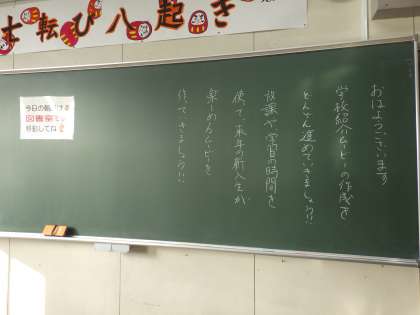 転び八起き
おはようございます
学校紹介ムービーの作成を
どんどん進めていきましょう!!
放課や学習の時間を
使って、来年の新入生が
楽しめるムービーを
作っていきましょう!!
今日の朝
移動してね